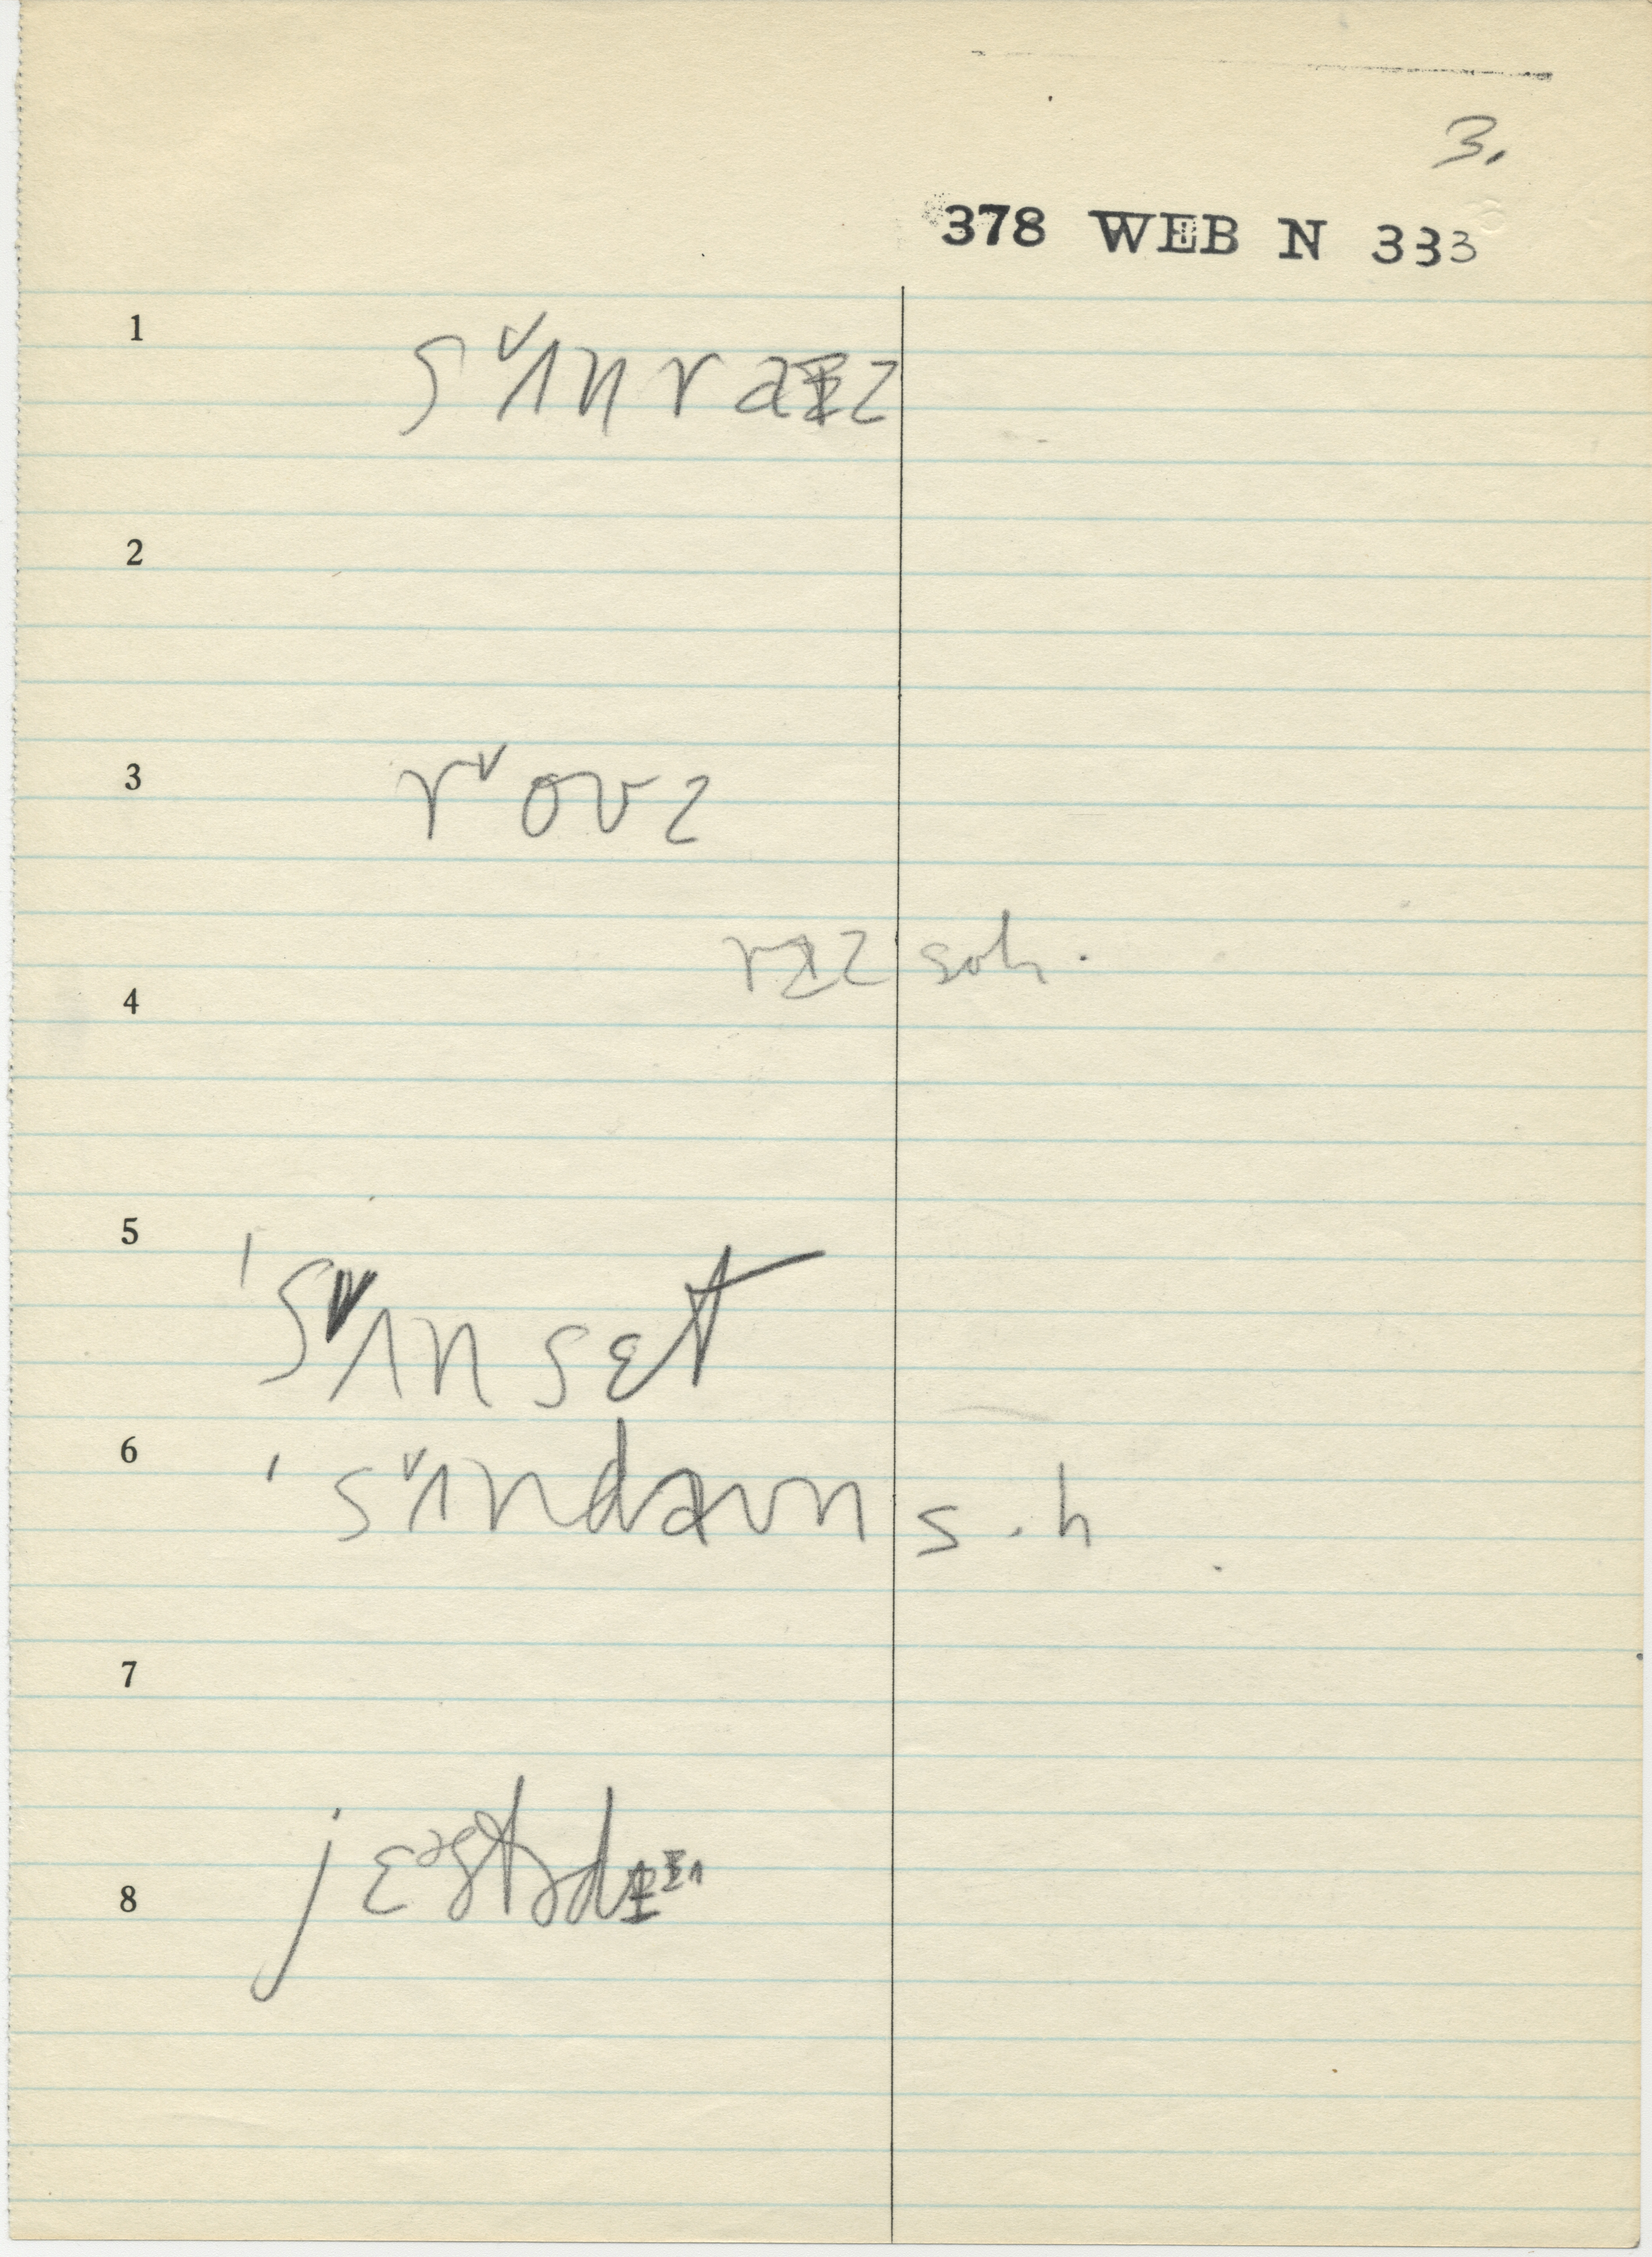 3.
378 WEB N 333
1 sᵛʌnraɪz
2
3 rᵛoʊz
rɪz soh.
4
5 'sᵛʌnsɛt
6 'sᵛʌndaʊn s.h
7
8 jɛᵊstɚdɪᶦ^